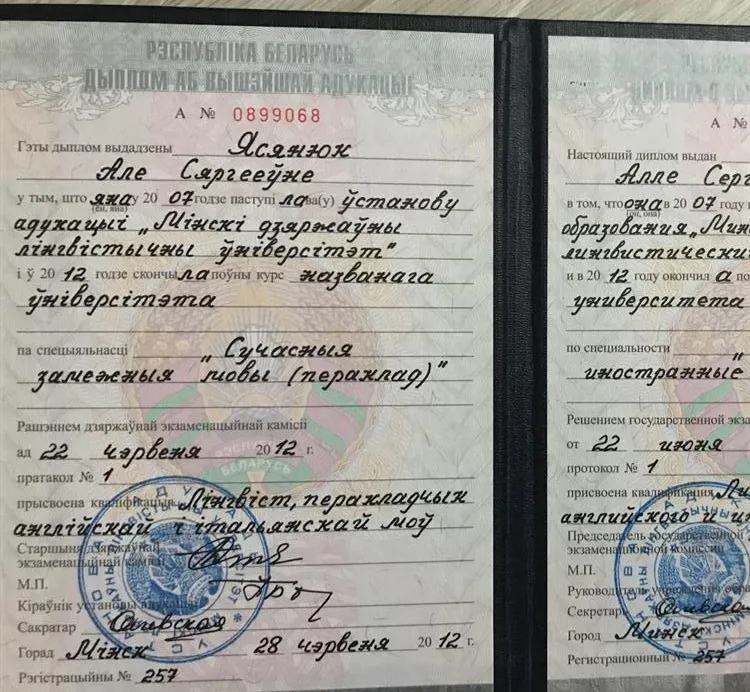 РЭСПУБЛІКА БЕЛАРУСЬ
ДЫПЛОМ АБ ВЫШЭЙШАЙ АДУКАЦЫІ
А № 0899068
Гэты дыплом выдадзены Ясянюк
Але Сяргееўне
у тым, што яна у 20 07 годзе паступі ла ва(у) ўстанову
(ён, яна)
адукацыі „Мінскі дзяржаўны
лінгвістычны ўніверсітэт"
і ў 20 12 годзе скончы ла поўны курс названага
ўніверсітэта
па спецыяльнасці „Сучасныя
замежныя мовы (пераклад)"
Рашэннем дзяржаўнай экзаменацыйнай камісіі
ад 22 чэрвеня 20 12 г.
пратакол № 1
прысвоена кваліфікацыя Лінгвіст, перакладчык
англійскай і італьянскай моў
Старшыня дзяржаўнай
экзаменацыйнай камісіі
М.П.
Кіраўнік установы адукацыі
Сакратар
Горад Мінск 28 чэрвеня 20 12 г.
Рэгістрацыйны № 257
БЕЛАРУСЬ
А №
Настоящий диплом выдан
Алле Серг
в том, что она в 20 07 году
(он, она)
образования „Мин
лингвистически
и в 20 12 году окончил а по
университета
по специальности „
иностранные
Решением государственной экза
от 22 июня
протокол № 1
присвоена квалификация Ли
английского и и
Председатель государственной
экзаменационной комиссии
М.П.
Руководитель учреждения обра
Секретарь
Город Минск
Регистрационный № 257